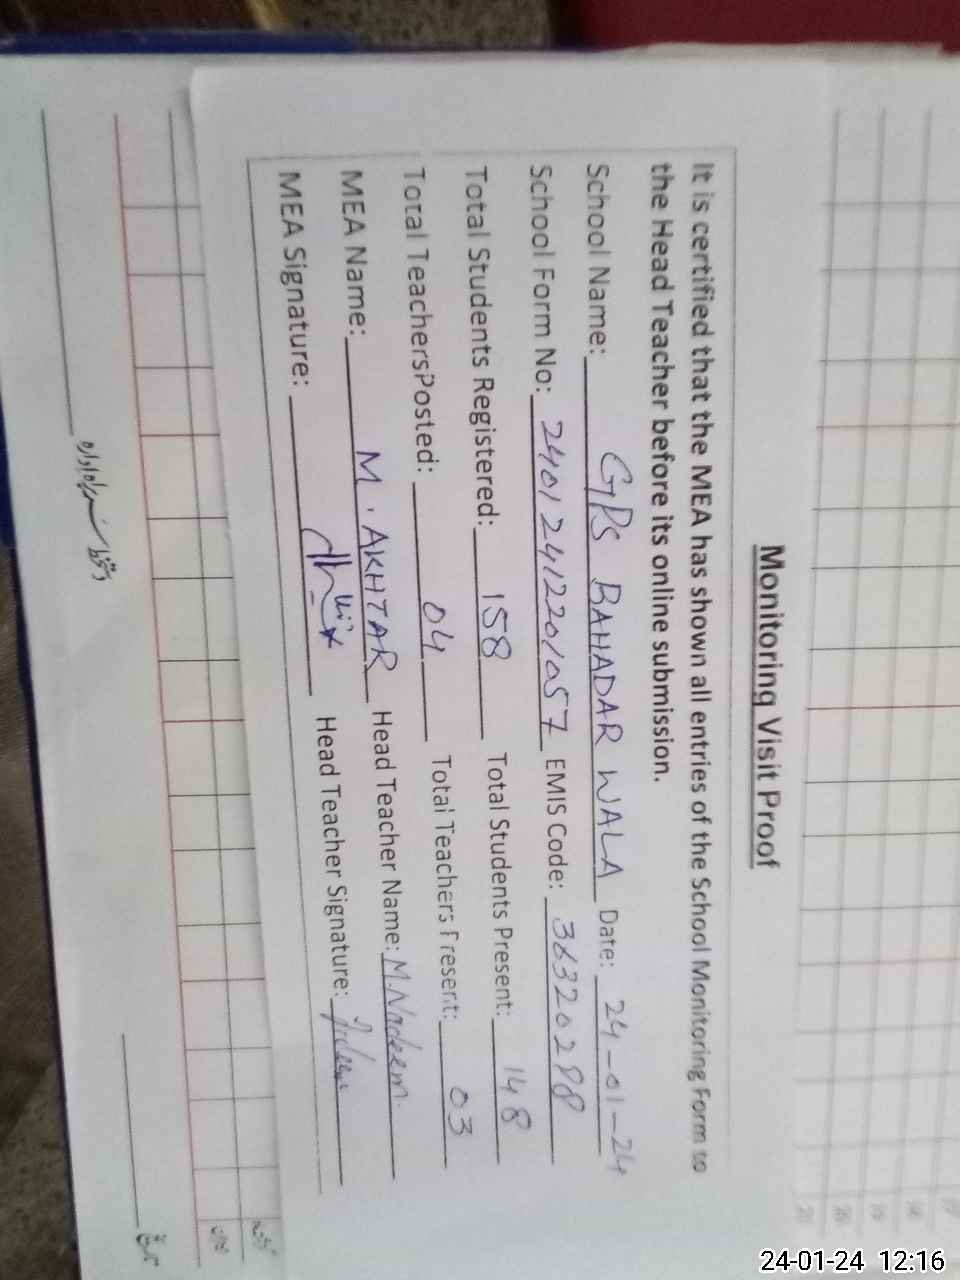 Monitoring Visit Proof
It is certified that the MEA has shown all entries of the School Monitoring Form to
the Head Teacher before its online submission.
School Name: GPS BAHADAR WALA Date: 24-01-24
School Form No: 24012412201057 EMIS Code: 36320288
Total Students Registered: 158 Total Students Present: 148
Total TeachersPosted: 04 Total Teachers Present: 03
MEA Name: M. AKHTAR Head Teacher Name: M.Nadeem.
MEA Signature: Head Teacher Signature:
دستخط سربراه اداره
تاریخ
24-01-24 12:16